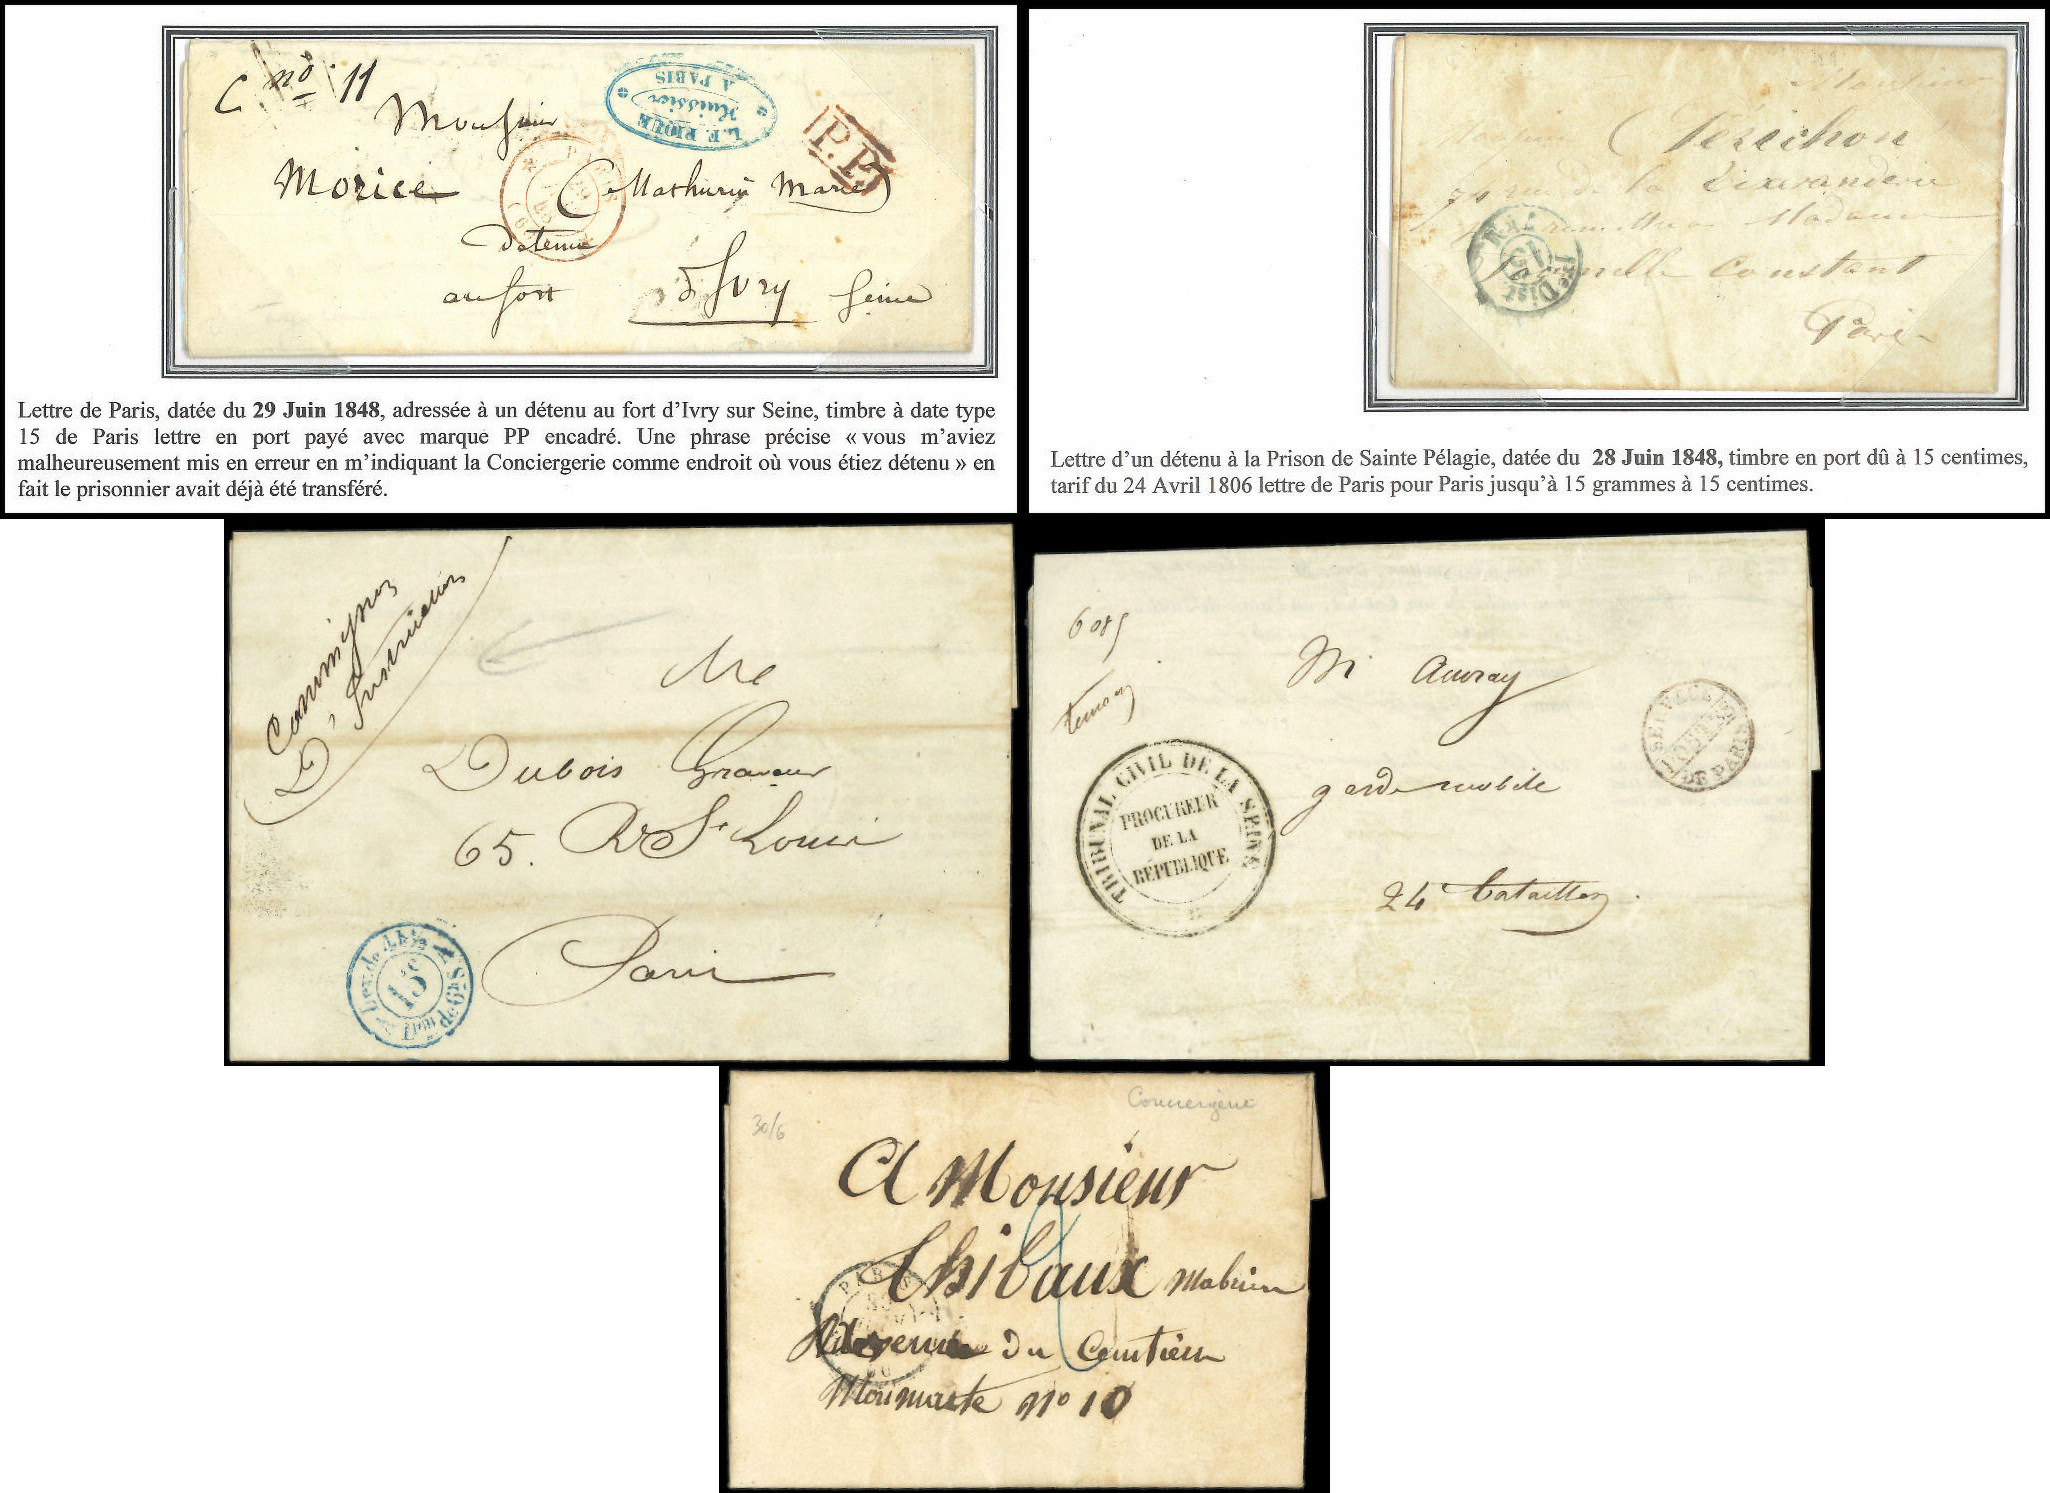 C no 11
Monsieur
Morice Mathurin Marie
detenu
au fort d'Ivry Seine
L.F. PIQUE
Huissier
A PARIS
PARIS
P.P.
Lettre de Paris, datée du 29 Juin 1848, adressée à un détenu au fort d'Ivry sur Seine, timbre à date type
15 de Paris lettre en port payé avec marque PP encadré. Une phrase précise « vous m'aviez
malheureusement mis en erreur en m'indiquant la Conciergerie comme endroit où vous étiez détenu » en
fait le prisonnier avait déjà été transféré.
Monsieur
Perichon
rue de la
remettre a Madame
Constant
Paris
15
Dist
Lettre d'un détenu à la Prison de Sainte Pélagie, datée du 28 Juin 1848, timbre en port dû à 15 centimes,
tarif du 24 Avril 1806 lettre de Paris pour Paris jusqu'à 15 grammes à 15 centimes.
Commission
D'Instruction
Me
Dubois Graveur
65. R. St Louis
Paris
15c
6085
temoin
Mr Auvray
garde mobile
24 bataillon
TRIBUNAL CIVIL DE LA SEINE
PROCUREUR
DE LA
RÉPUBLIQUE
SERVICE
DE PARIS
Conciergerie
30/6
A Monsieur
Thibaux Mabrier
du Centier
Monmarte no 10
PARIS
60